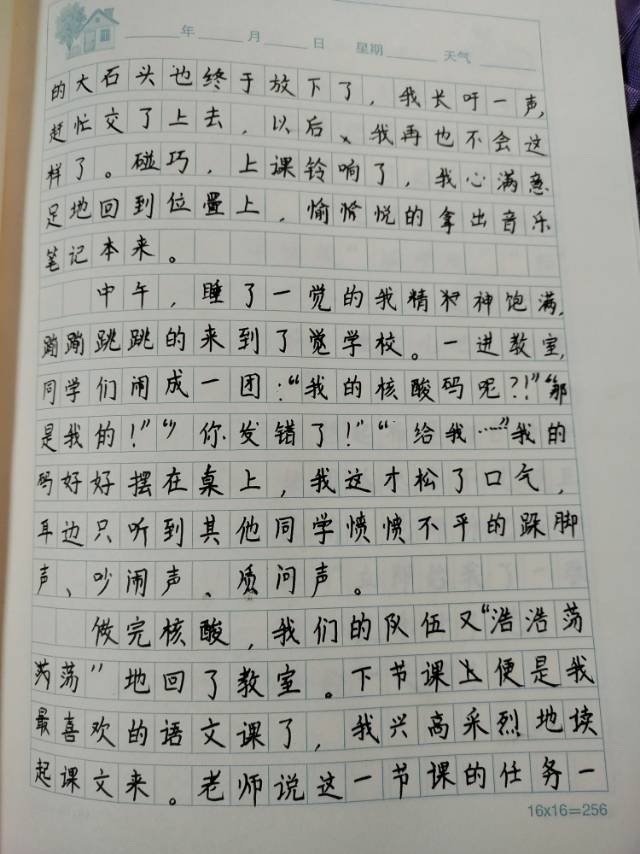 年 月 日 星期 天气
的大石头也终于放下了，我长吁一声，
赶忙交了上去，以后、我再也不会这
样了。碰巧，上课铃响了，我心满意
足地回到位置上，愉悦的拿出音乐
笔记本来。
中午，睡了一觉的我精神饱满，
蹦蹦跳跳的来到了学校。一进教室，
同学们闹成一团：“我的核酸码呢？！”“那
是我的！”“你发错了！”“给我……”我的
码好好摆在桌上，我这才松了口气，
耳边只听到其他同学愤愤不平的跺脚
声、吵闹声、质问声。
做完核酸，我们的队伍又“浩浩荡
荡”地回了教室。下节课便是我
最喜欢的语文课了，我兴高采烈地读
起课文来。老师说这一节课的任务一
16x16=256